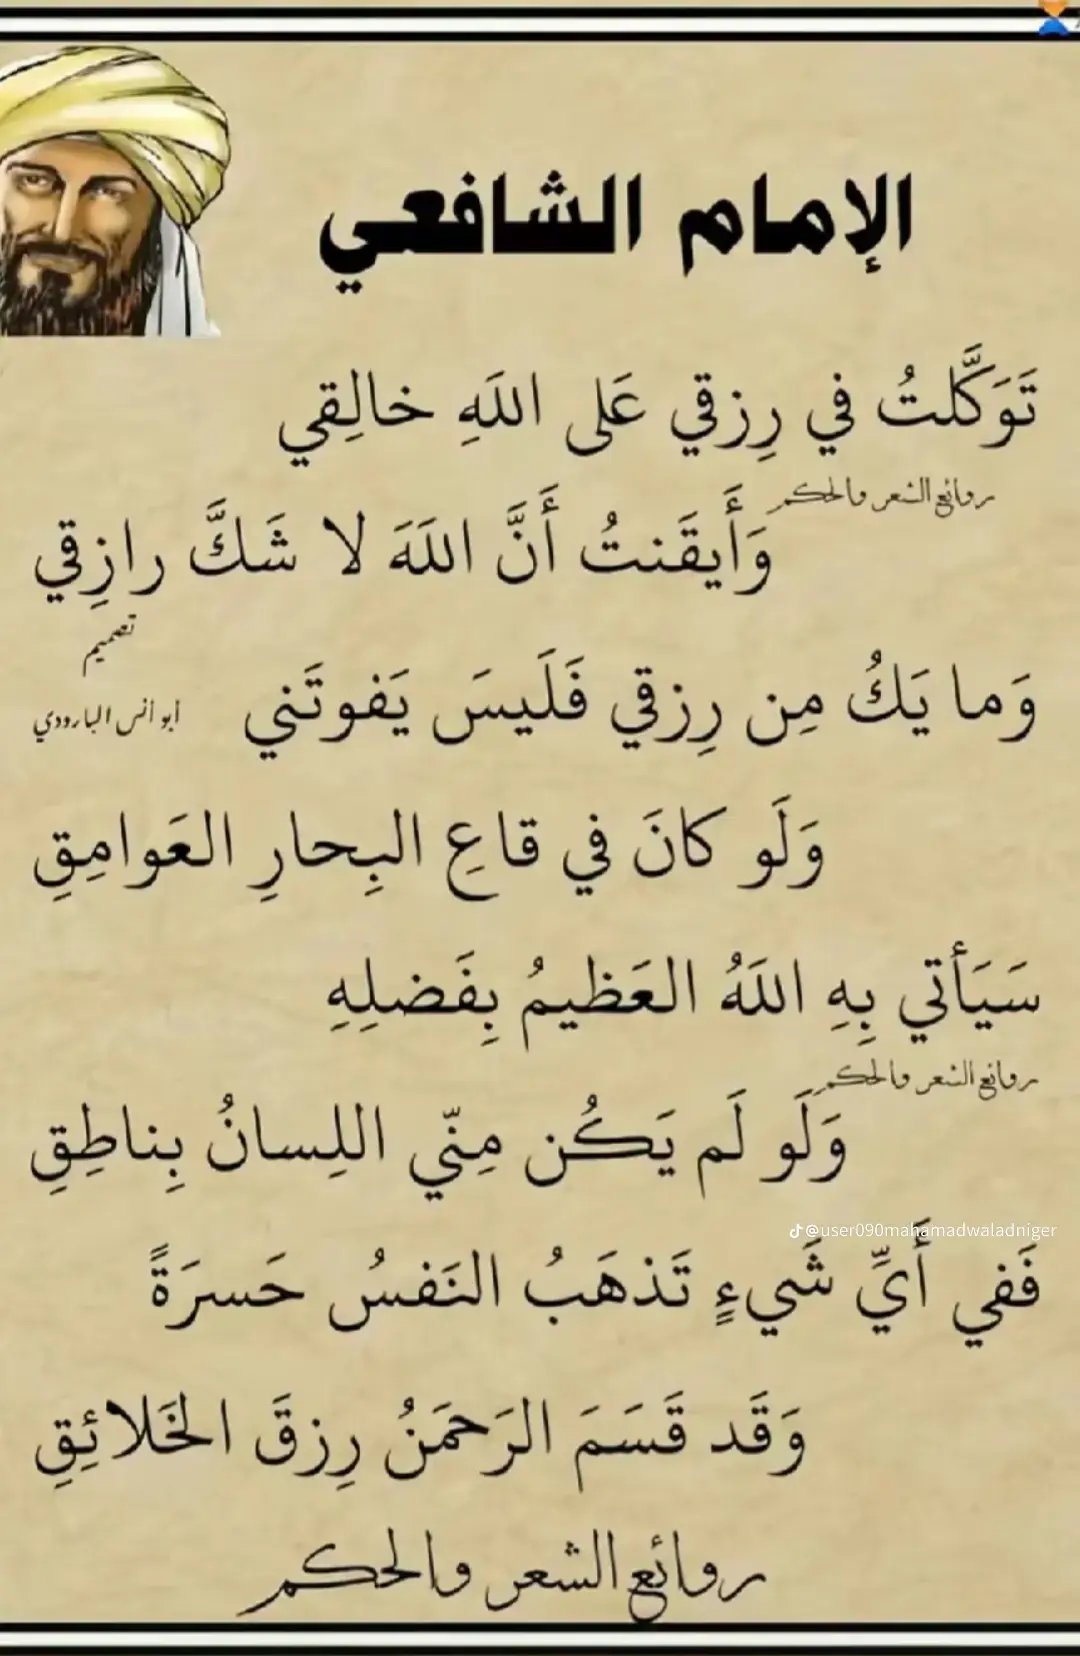 الإمام الشافعي
تَوَكَّلتُ في رِزقي عَلى اللَهِ خالِقي
روائع الشعر والحكم
وَأَيقَنتُ أَنَّ اللَهَ لا شَكَّ رازِقي
تصميم
وَما يَكُ مِن رِزقي فَلَيسَ يَفوتَني
أبو أنس البارودي
وَلَو كانَ في قاعِ البِحارِ العَوامِقِ
سَيَأتي بِهِ اللَهُ العَظيمُ بِفَضلِهِ
روائع الشعر والحكم
وَلَو لَم يَكُن مِنّي اللِسانُ بِناطِقِ
@user090mahamadwaladniger
فَفي أَيِّ شَيءٍ تَذهَبُ النَفسُ حَسرَةً
وَقَد قَسَمَ الرَحمَنُ رِزقَ الخَلائِقِ
روائع الشعر والحكم